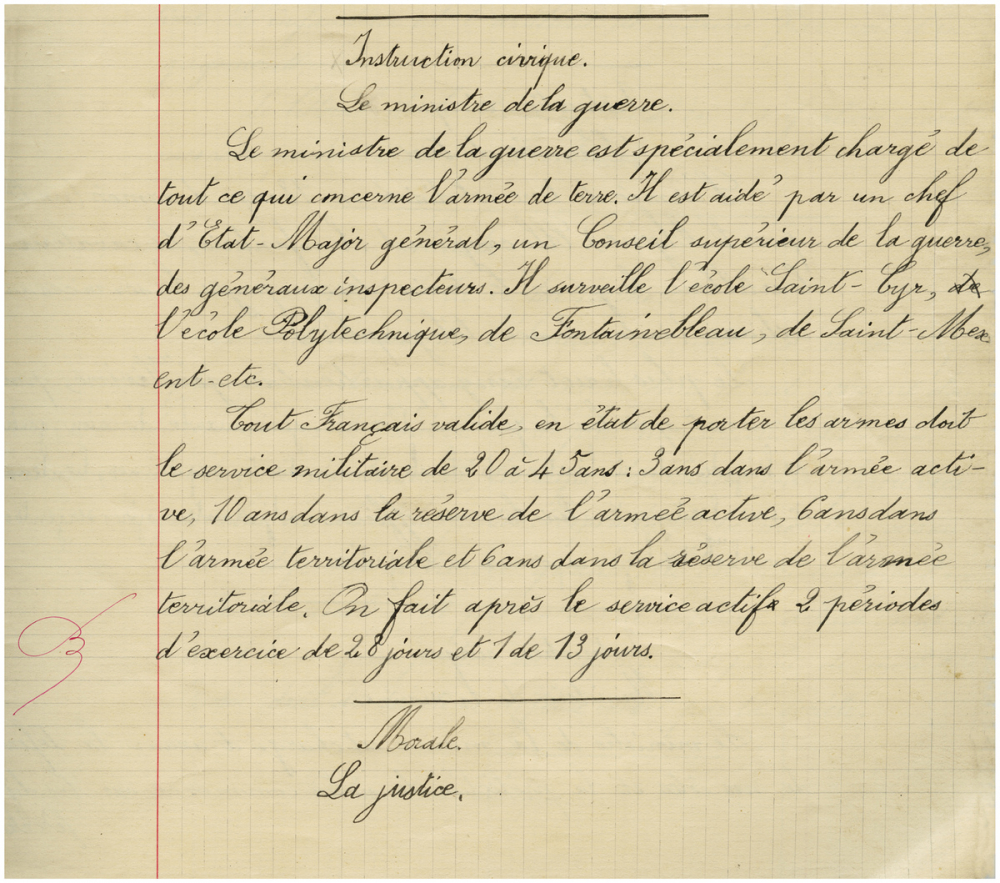 Instruction civique.
Le ministre de la guerre.
Le ministre de la guerre est spécialement chargé de
tout ce qui concerne l'armée de terre. Il est aidé par un chef
d'Etat-Major général, un Conseil supérieur de la guerre,
des généraux inspecteurs. Il surveille l'école Saint-Cyr, de
l'école Polytechnique, de Fontainebleau, de Saint-Mex
ent-etc.
Tout Français valide, en état de porter les armes doit
le service militaire de 20 à 45 ans : 3 ans dans l'armée acti-
ve, 10 ans dans la réserve de l'armée active, 6 ans dans
l'armée territoriale et 6 ans dans la réserve de l'armée
territoriale. On fait après le service actif 2 périodes
d'exercice de 28 jours et 1 de 13 jours.
Morale.
La justice.